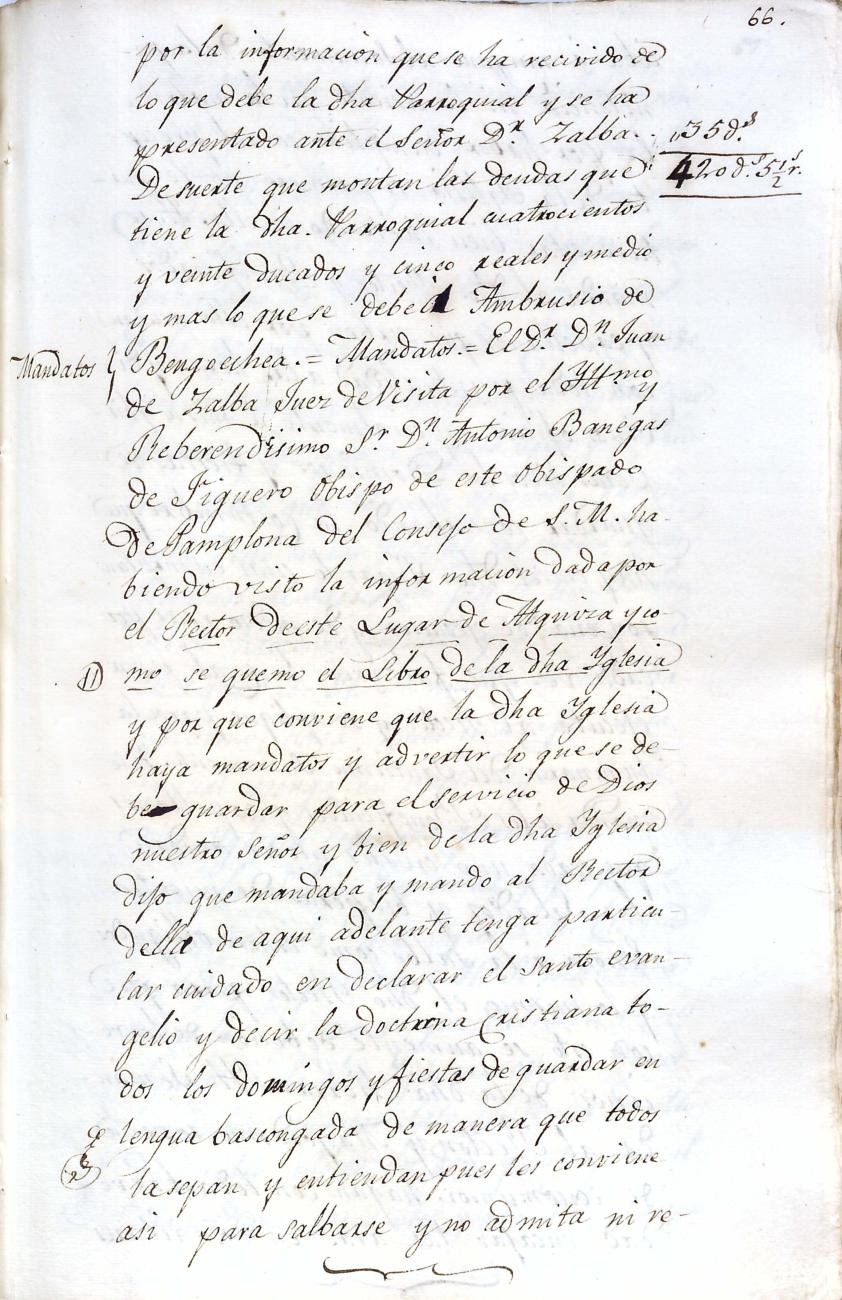 66.
por la informacion que se ha recivido de
lo que debe la dha Parroquial y se ha
presentado ante el Señor D.r Zalba.. 135 d.s
De suerte que montan las deudas que 420 d.s 5 1/2 r.s
tiene la dha. Parroquial cuatrocientos
y veinte ducados y cinco reales y medio
y mas lo que se debe á Ambrusio de
Mandatos } Bengoechea. = Mandatos. = El D.r D.n Juan
de Zalba Juez de Visita por el Yll.mo y
Reberendisimo S.r D.n Antonio Banegas
de Figuero Obispo de este Obispado
de Pamplona del Consejo de S. M. ha-
biendo visto la informacion dada por
el Rector de este Lugar de Alquiza y co-
11 mo se quemo el Libro de la dha Yglesia
y por que conviene que la dha Yglesia
haya mandatos y advertir lo que se de-
be guardar para el servicio de Dios
nuestro Señor y bien de la dha Yglesia
dijo que mandaba y mando al Rector
della de aqui adelante tenga particu-
lar cuidado en declarar el santo evan-
gelio y decir la doctrina Cristiana to-
dos los domingos y fiestas de guardar en
lengua bascongada de manera que todos
la sepan y entiendan pues les conviene
asi para salbarse y no admita ni re-